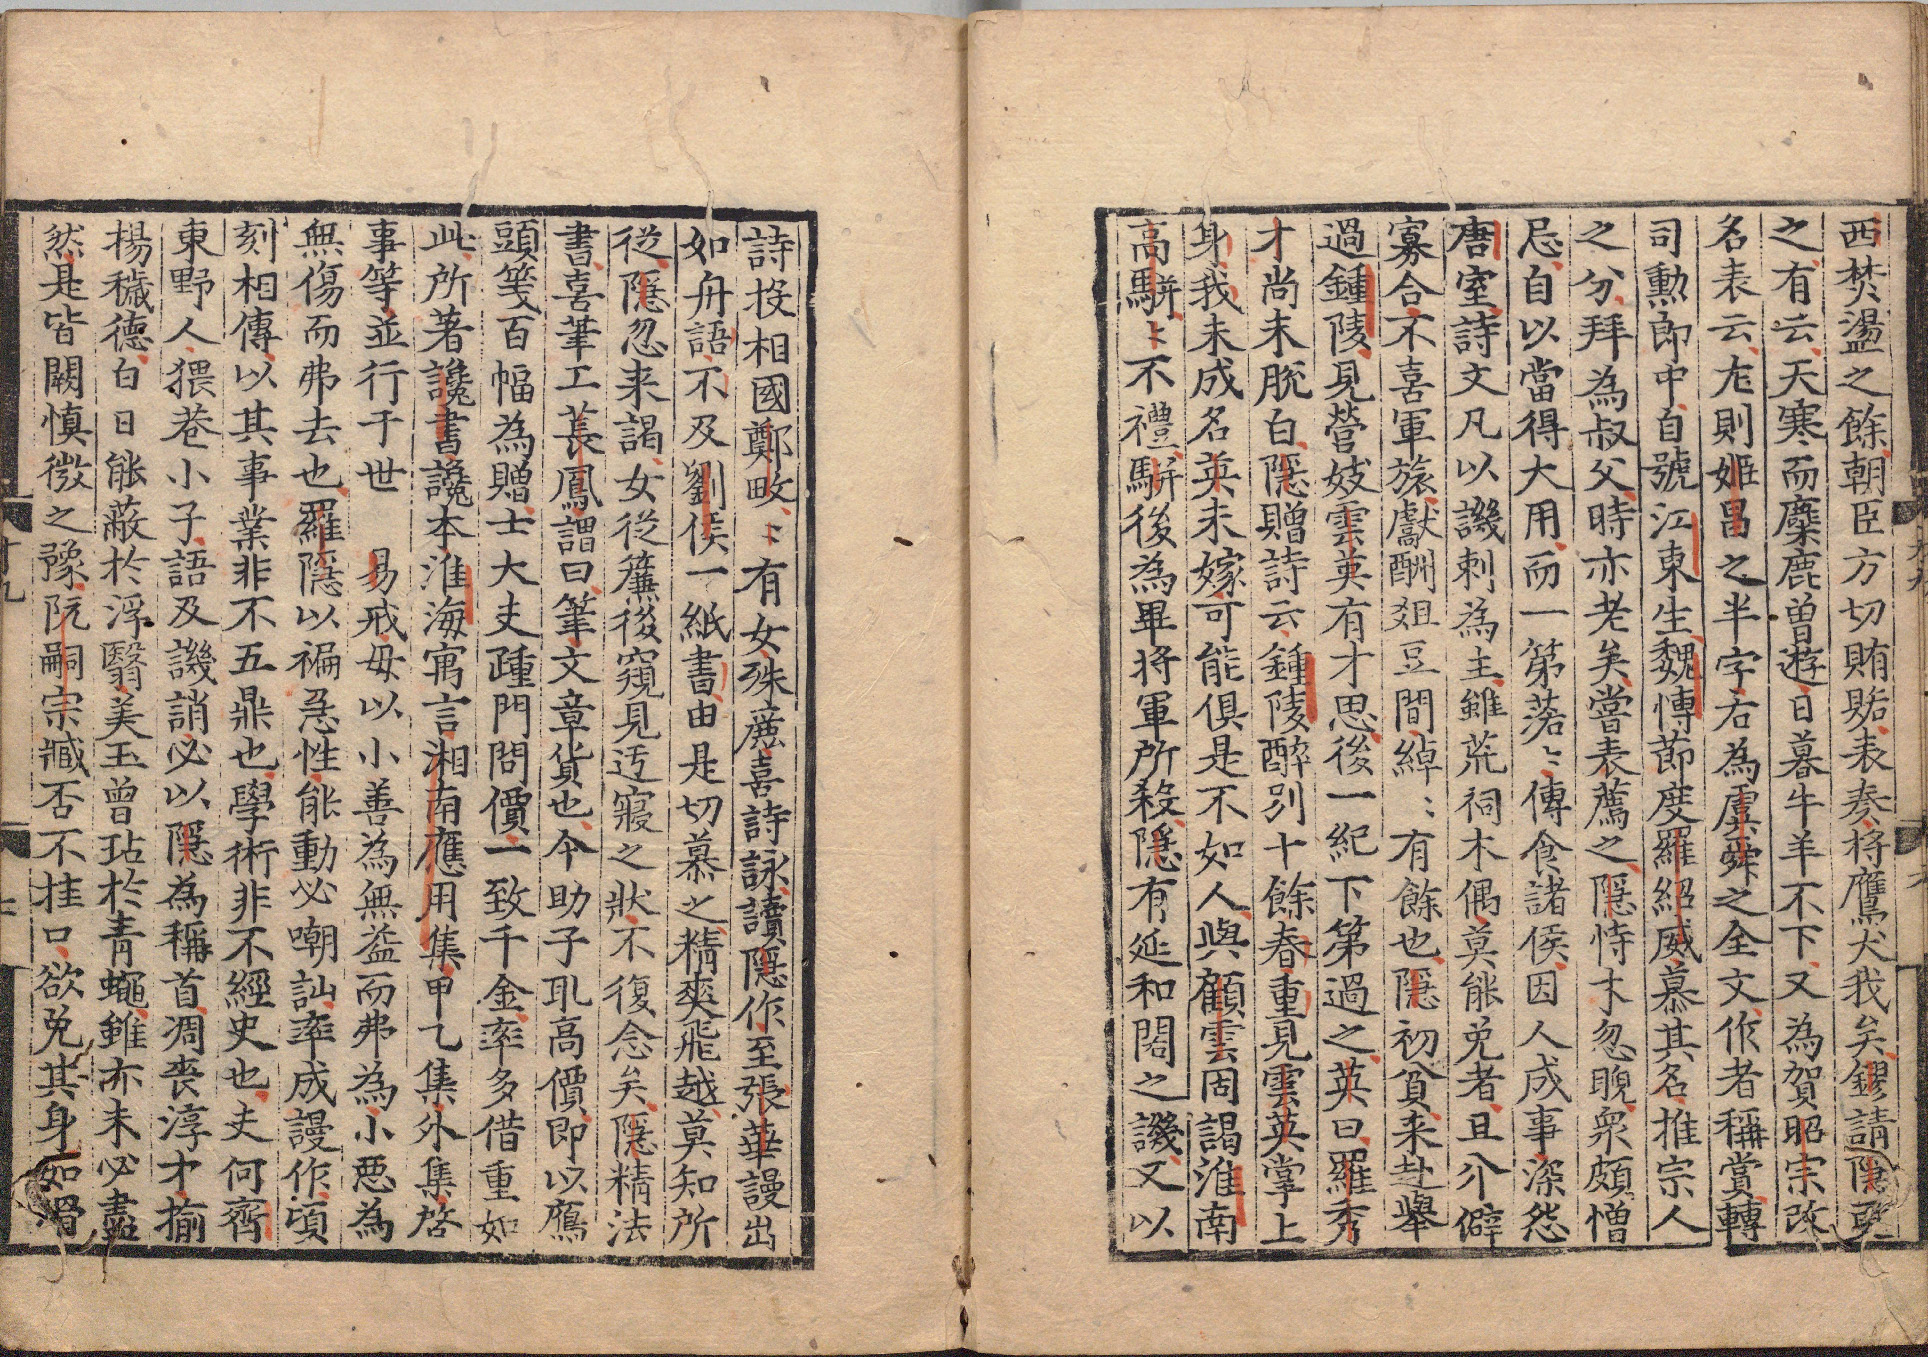 西焚盪之餘朝臣方切賄賂表奏將鷹犬我矣鏐請隱更
之有云天寒而麋鹿曽遊日暮牛羊不下又為賀昭宗改
名表云左則姬昌之半字右為虞舜之全文作者稱賞轉
司勲郎中自號江東生魏愽節度羅紹威慕其名推宗人
之分拜為叔父時亦老矣嘗表薦之隱恃才忽睨衆頗憎
忌自以當得大用而一第落〻傳食諸侯因人成事深怨
唐室詩文凡以譏刺為主雖荒祠木偶莫能免者且介僻
寡合不喜軍旅獻酬俎豆間綽〻有餘也隱初貧来赴舉
過鍾陵見營妓雲英有才思後一紀下第過之英曰羅秀
才尚未脫白隱贈詩云鍾陵醉別十餘春重見雲英掌上
身我未成名英未嫁可能俱是不如人與顧雲同謁淮南
高駢〻不禮駢後為畢將軍所殺隱有延和閣之譏又以
詩投相國鄭畋〻有女殊麗喜詩詠讀隱作至張華謾出
如舟語不及劉侯一紙書由是切慕之精爽飛越莫知所
從隱忽来謁女從簾後窺見迃寢之狀不復念矣隱精法
書喜筆工萇鳳謂曰筆文章貨也今助子取高價即以鴈
頭箋百幅為贈士大夫踵門問價一致千金率多借重如
此所著讒書讒本淮海寓言湘南應用集甲乙集外集啓
事等並行于世　易戒毋以小善為無益而弗為小惡為
無傷而弗去也羅隱以褊急性能動必嘲訕率成謾作頃
刻相傳以其事業非不五鼎也學術非不經史也夫何齊
東野人猥巷小子語及譏誚必以隱為稱首凋䘮淳才揄
楊穢德白日能蔽於浮翳美玉曽玷於青蠅雖亦未必盡
然是皆闕慎微之豫阮嗣宗臧否不挂口欲免其身如滑